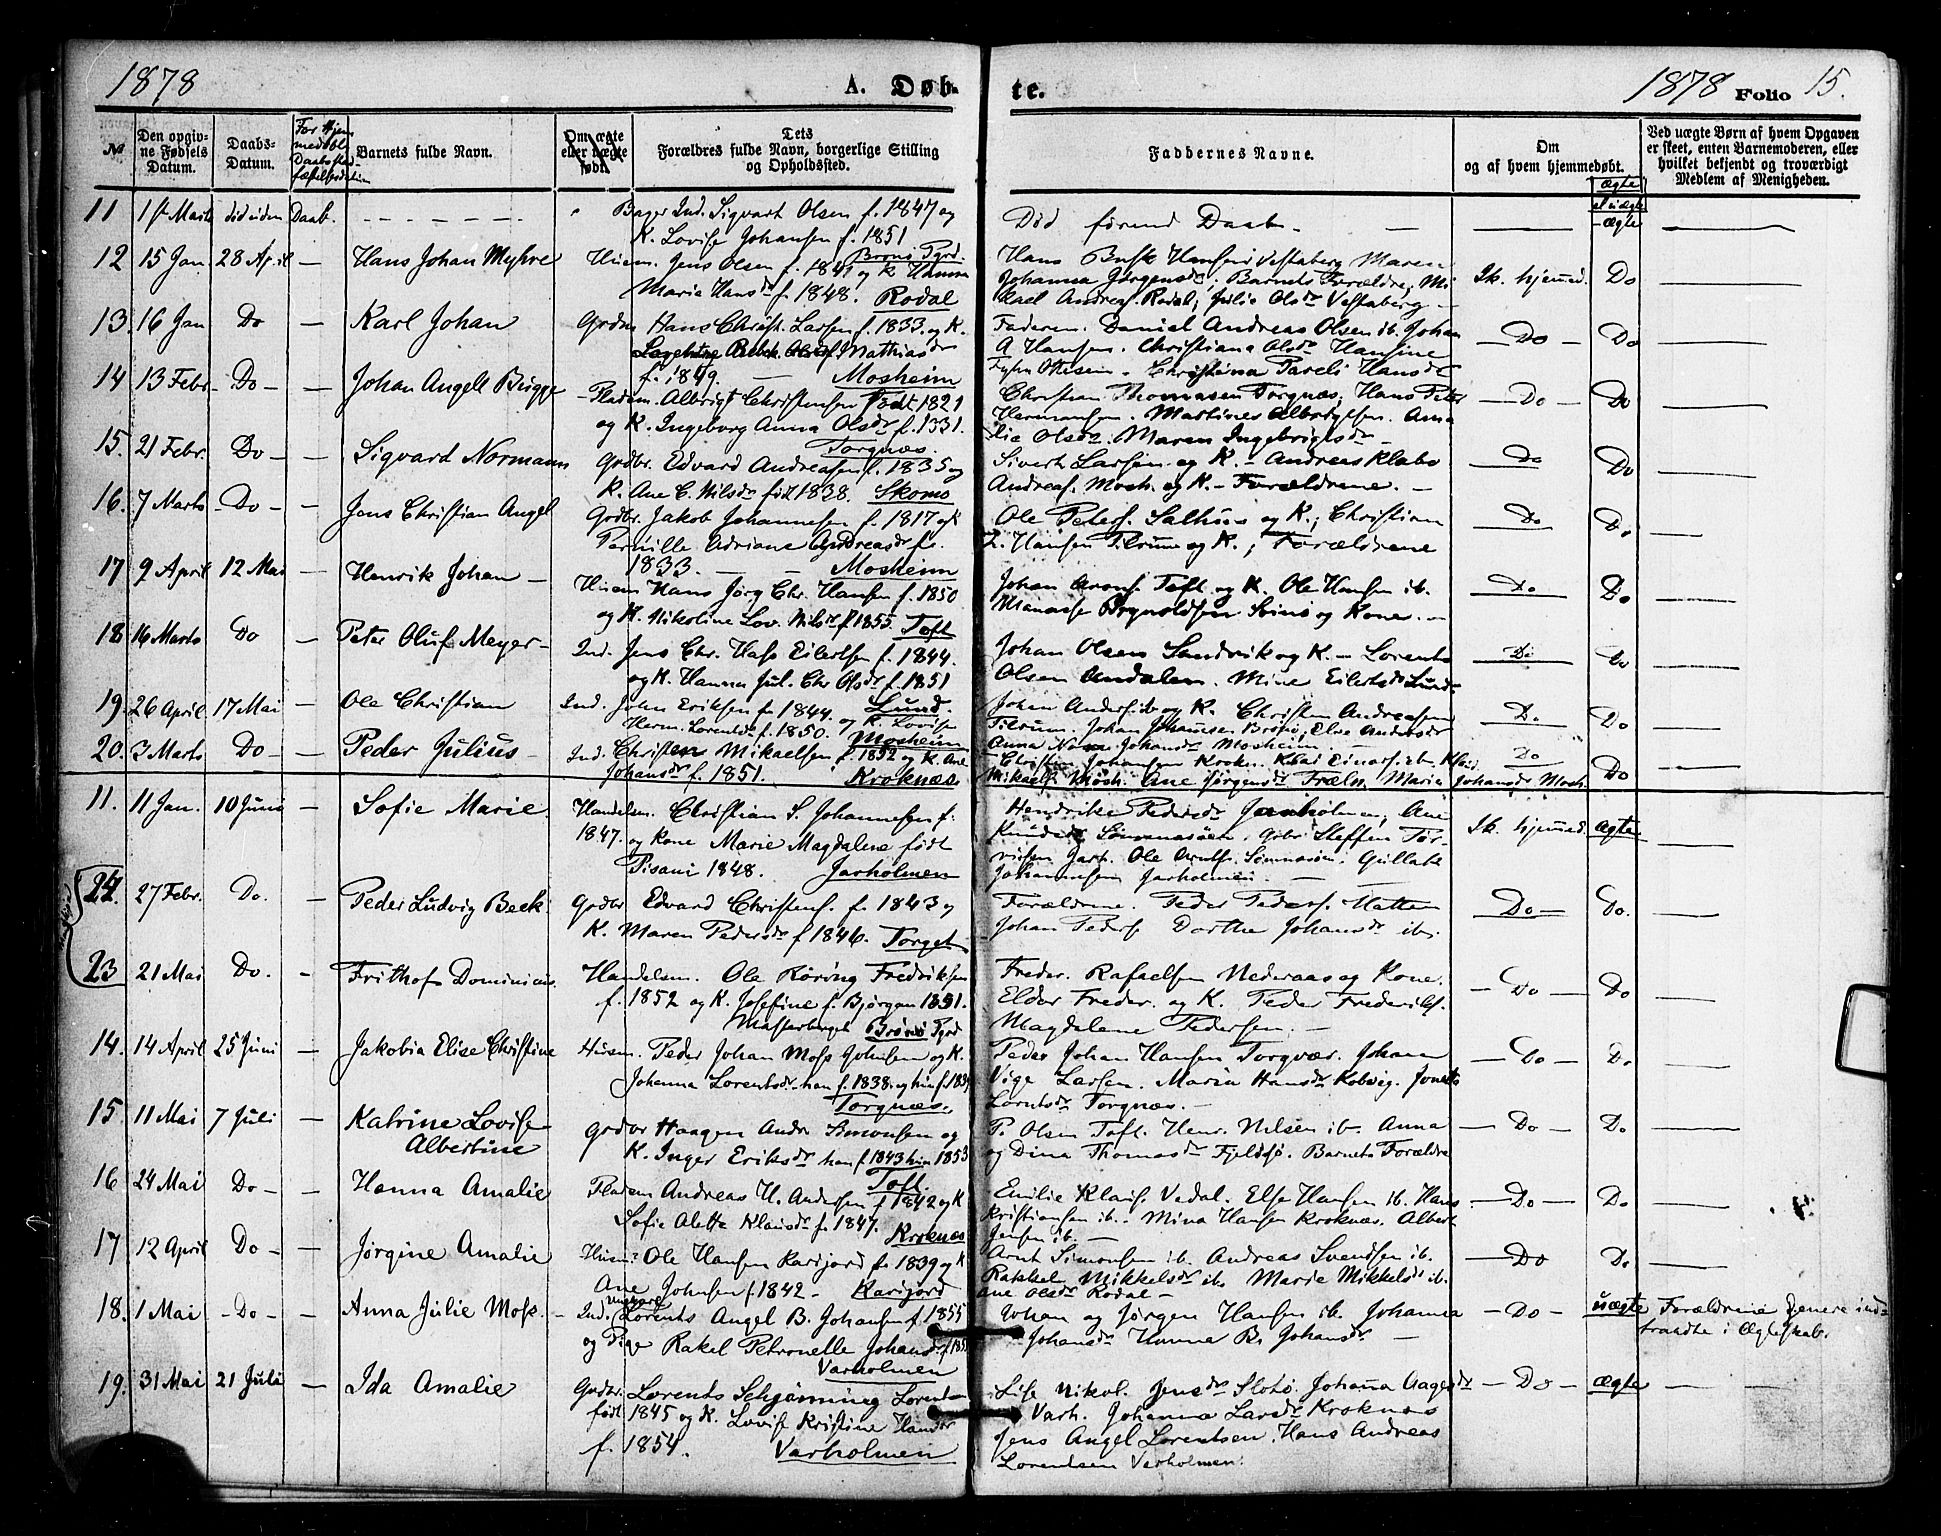 1878
A. Døb-
te.
1878 Folio 15.
№
Den opgiv-
ne Fødsels
Datum.
Daabs-
Datum.
Barnets fulde Navn.
Om ægte
eller uægte
født.
Forældres fulde Navn, borgerlige Stilling
og Opholdssted.
Faddernes Navne.
Om
og af hvem hjemmedøbt.
ægte
el uægte
Ved uægte Børn af hvem Opgaven
er skeet, enten Barnemoderen, eller
hvilket bekjendt og troværdigt
Medlem af Menigheden.
11 1ste Marts død uden Daab. Bager Ind. Sigvart Olsen f. 1847 og
K. Lovise Johansen f. 1851
Død førend Daab - ægte
12 15 Jan 28 April — Hans Johan Myhre Husm. Jens Olsen f. 1841 og K. Hanna
Maria Hansdr f. 1848. Rodal
Johanna Jørgensdr, Barnets Forældre, Mi
kael Andreas. Rodal, Julie Olsdr Vestaberg
Ik. hjemmed. Do
13. 16 Jan Do — Karl Johan Grdm Hans Christ. Larsen f. 1833. og K.
Mathiasdr
f. 1849. Mosheim
Faderen. Daniel Andreas Olsen ib. Johan
A Hansen. Christiana Olsdr Hansine
Do Do
14 13 Febr. Do — Johan Angell Bugge Pladsm. Albrigt Christensen født 1821
og K. Ingeborg Anna Olsdr f. 1831.
Torgnæs.
Christian Thomasen Torgnæs, Hans Peter
Hermansen. Martinus Albrigtsen. Anna
lia Olsdr. Maren Ingebrigtsdr
Do Do
15. 21 Febr. Do — Sigvard Normann Grdbr. Edvard Andreasen f. 1835 og
K. Ane C. Nilsdr født 1838. Skomo
Sivert Larsen og K. - Andreas Klabo
Andreas. Mosh. og K. - Forældrene. —
Do Do
16. 7 Marts Do — Jens Christian Angel Grdbr. Jakob Johannesen f. 1817 og K
Pernille Adriane Andreasdr f.
1833. Mosheim
Ole Peters. Salhus og K., Christian
L. Hansen Tilrum og K., Forældrene
Do Do
17 9 April 12 Mai — Henrik Johan — Huusm Hans Jørg. Chr. Hansen f. 1850
og K. Nikoline Lov. Nilsdr f. 1855. Toft
Johan Arons. Toft og K. Ole Hansen ib.
Manasse Brynoldsen Svinø og Kone.
Do Do
18 16 Marts Do — Peter Oluf Meyer — Ind. Jens Chr. Hass Eilertsen f. 1844.
og K. Hanna Jul. Chr Olsdr f. 1851
Lund.
Johan Olsen Sandvik og K. - Lorents
Olsen Andalen. Mine Eilertsdr Lund
Do Do
19. 26 April 17 Mai — Ole Christian Ind. John Eriksen f. 1844. og K. Lovise
Herm. Lorentsdr f. 1850. Mosheim
Johan Anders. ib og K. Christen Andreassen
Tilrum. Johan Johansen Brønø, Else Andersdr
Anna Johansdr Mosheim.
Do Do
20. 3 Marts Do — Peder Julius — Ind. Christen Mikaelsen f. 1852 og K. Ane
Johansdr f. 1851. Kroknæs
Christian Johansen Krokn.
Mikaels. Mosh. Ane Jørgensdr Maria Johansdr Mosh.
Do Do
11. 11 Jan. 10 Juni — Sofie Marie. Handelsm. Christian S. Johannesen f.
1847. og Kone Marie Magdalene født
Pisani 1848. Jarholmen
Hendrikke Pedersdr Jarholmen, Ane
Steffen Tor-
Johannesen Jarholmen.
Ik. hjemmed. ægte
22. 27 Febr. Do. — Peder Ludvig Beck. Grdbr. Edvard Christens. f. 1843 og
K. Maren Pedersdr f 1846. Torget
Forældrene. Peder Peders. Hatten
Johan Peders Dorthe Johansdr ib.
Do Do.
23 21 Mai Do. — Frithof Dominicus. Handelsm. Ole Røring Fredriksen
f. 1852 og K. Josefine f. Bjørgan 1851.
Brønø Pgrd
Freder. Rafaelsen Nederaas og Kone.
Elder Freder. og K. Peder Frederiks.
Magdalene Pedersen.
Do Do
14. 14 April 25 Juni — Jakobia Elise Christine Husm. Peder Johan Moss Johnsen og K.
Johanna Lorentsdr han f. 1838. og hun f. 1839
Torgnæs.
Peder Johan Hansen Torgvær. Johan
Vige Larsen. Maria Hansdr Kobvig.
Lorntsdr Torgnæs.
Do Do
15 11 Mai 7 Juli — Katrine Lovise
Albertine
Grdbr Haagen Andr. Simonsen og
K. Inger Eriksdr han f. 1843 hun 1853
Toft.
P. Olsen Toft. Henr. Nilsen ib. Anna
og Dina Thomasdr Fjeldsø. Barnets Forældre
Do Do
16 24 Mai Do — Hanna Amalie Pladsm Andreas U. Andersen f 1842 og K
Sofie Aletta Klausdr f. 1847. Kroknæs
Emilie Klaus. Vedal. Else Hansen ib. Hans
Kristiansen ib. Mina Hansen Kroknæs. Albert
Jensen ib.
Do Do
17 12 April Do — Jørgine Amalie Husm. Ole Hansen Karijord f. 1839 og K
Ane Johnsen f. 1842 - Karijord
Arnt Simonsen ib. Andreas Svendsen ib.
Rakkel Mikkelsdr ib. Marie Mikkelsdr ib.
Ane Olsdr Rodal -
Do Do
18. 1 Mai Do — Anna Julie Mosk. Ind. Ungkarl Lorents Angel B. Johansen f. 1855
og Pige Rakel Petronelle Johansdr f. 185
Varholmen
Johan og Jørgen Hansen ib. Johanna
Johansdr Hanna B. Johansdr
Do uægte Forældrene senere ind-
traadte i Ægteskab.
19. 31 Mai 21 Juli — Ida Amalie Grdbr. Lorents Schjønning Lorents
født 1845 og K. Lovise Kristine Hansdr
f. 1854. Varholmen
Lise Nikol. Jensdr Slotø. Johanna Aagesdr
Varh. Johanna Larsdr Kroknæs
Jens Angel Lorentsen. Hans Andreas
Lorentsen Varholmen.
Do ægte